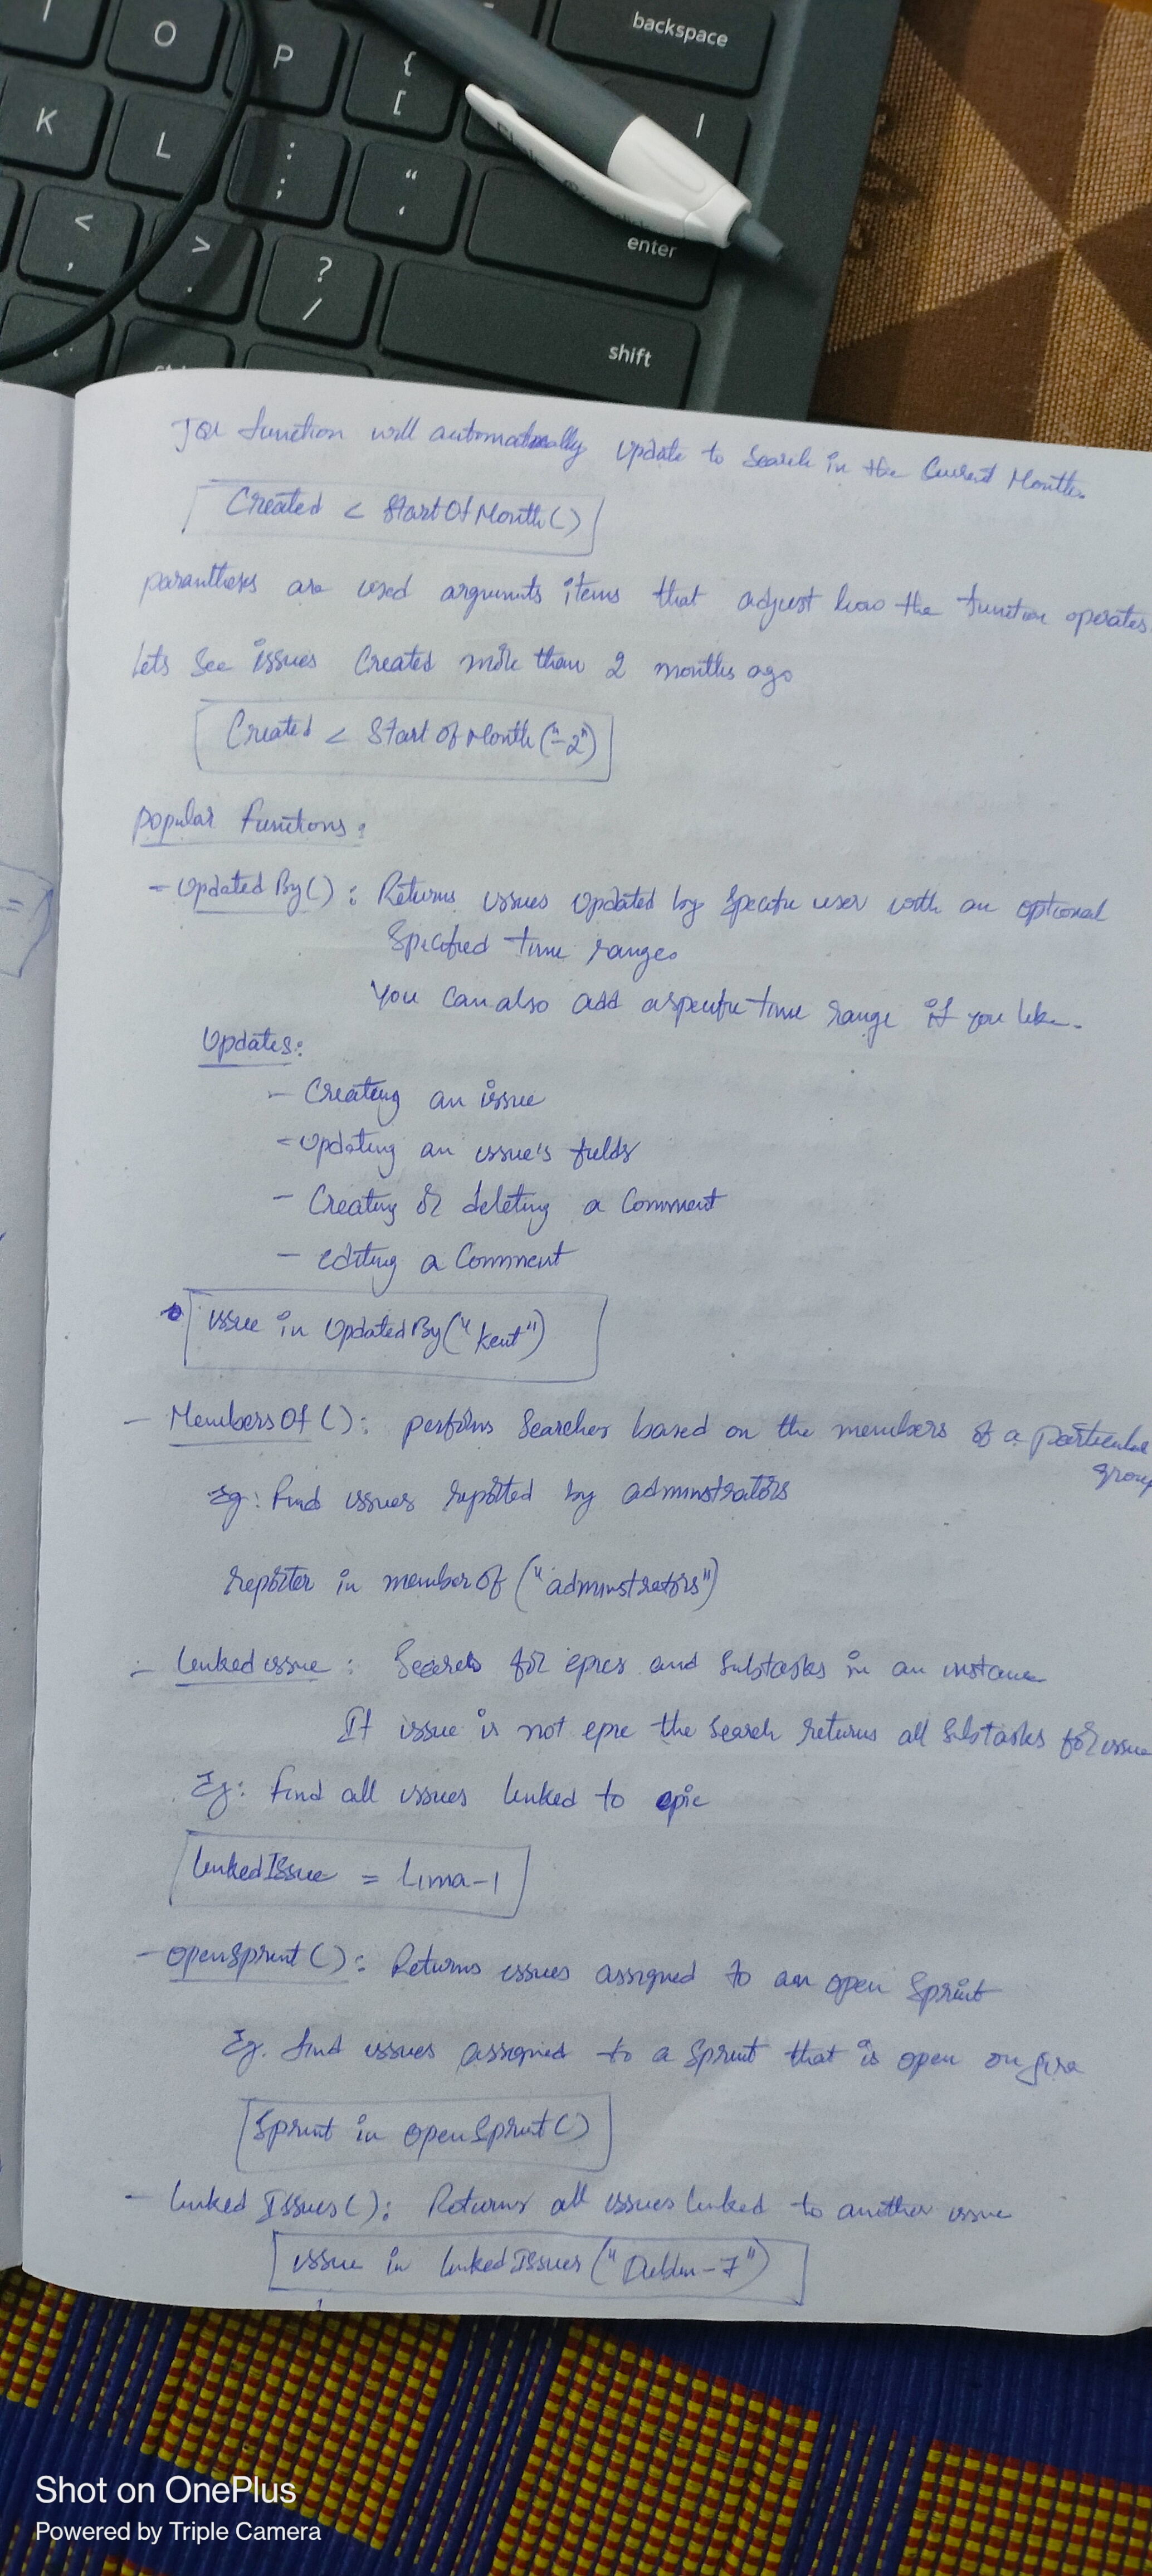 O
P
{
[
backspace
K
L
:
;
"
'
|
enter
<
,
>
.
?
/
shift
JQL function will automatically update to Search in the Current Month.
Created < StartOfMonth()
parantheses are used arguments items that adjust how the function operates
Lets See issues Created more than 2 months ago
Created < Start Of Month("-2")
Popular Functions:
- Updated By() : Returns issues updated by specific user with an optional
Specified time ranges
You can also add a specific time range if you like.
Updates:
- Creating an issue
- Updating an issue's fields
- Creating or deleting a Comment
- editing a Comment
issue in Updated By("kent")
- MembersOf(): performs Searches based on the members of a particular
group
Eg: Find issues reported by adminstrators
reporter in member Of ("adminstrators")
- linked issue : Search for epics and Subtasks in an instance
If issue is not epic the Search returns all Subtasks for issue
Eg: Find all issues linked to epic
linkedIssue = Lima-1
- OpenSprint(): Returns issues assigned to an open Sprint
Eg. find issues assigned to a Sprint that is open on
Sprint in openSprint()
- linked Issues(): Returns all issues linked to another issue
issue in linkedIssues("Dublin-7")
Shot on OnePlus
Powered by Triple Camera